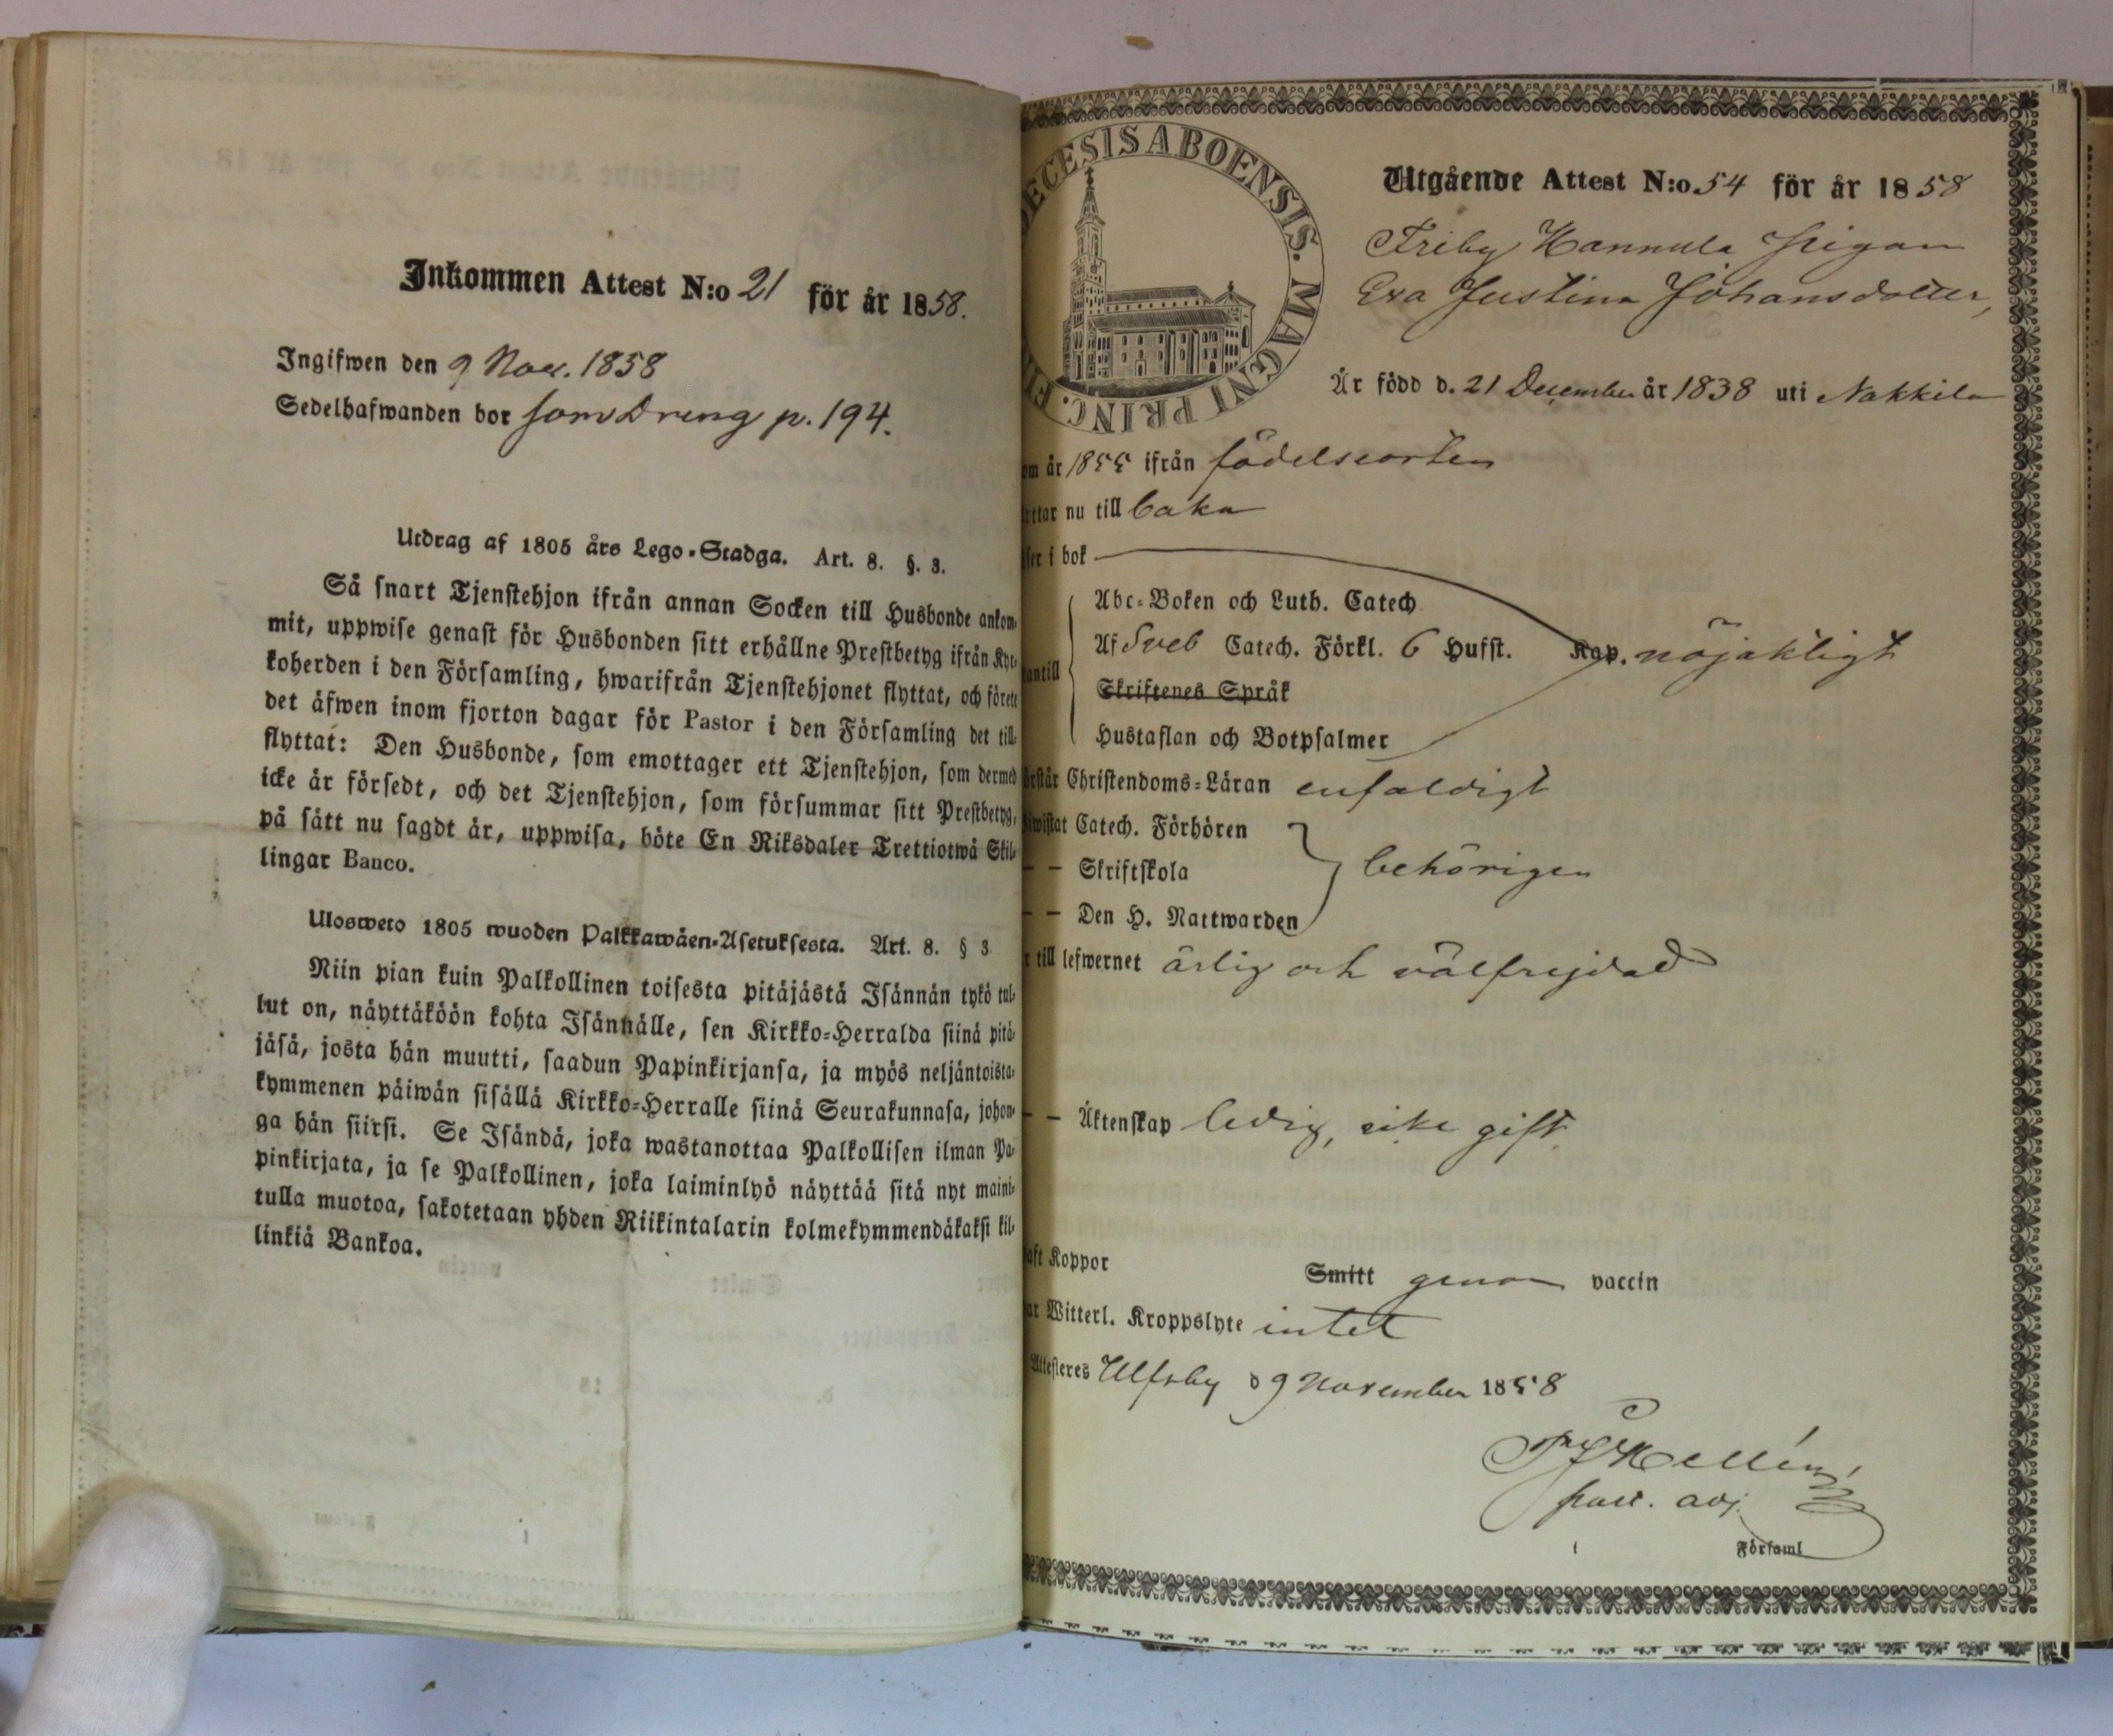 Inkommen Attest N:o 21 för år 1858.
Ingifwen den 9 Nov. 1858
Sedelhafwanden bor som Dreng p. 194.
Utdrag af 1805 års Lego-Stadga. Art. 8. §. 3.
Så snart Tjenstehjon ifrån annan Socken till Husbonde ankom-
mit, uppwise genast för Husbonden sitt erhållne Prestbetyg ifrån Kyr-
koherden i den Församling, hwarifrån Tjenstehjonet flyttat, och förete
det äfwen inom fjorton dagar för Pastor i den Församling det till-
flyttat: Den Husbonde, som emottager ett Tjenstehjon, som dermed
icke är försedt, och det Tjenstehjon, som försummar sitt Prestbetyg,
på sätt nu sagdt är, uppwisa, böte En Riksdaler Trettiotwå Skil-
lingar Banco.
Ulosweto 1805 wuoden Palkkawäen-Asetuksesta. Art. 8. § 3.
Niin pian kuin Palkollinen toisesta pitäjästä Isännän tykö tul-
lut on, näyttäköön kohta Isännälle, sen Kirkko-Herralda siinä pitä-
jäsä, josta hän muutti, saadun Papinkirjansa, ja myös neljäntoista-
kymmenen päiwän sisällä Kirkko-Herralle siinä Seurakunnasa, johon-
ga hän siirsi. Se Isändä, joka wastanottaa Palkollisen ilman Pa-
pinkirjata, ja se Palkollinen, joka laiminlyö näyttää sitä nyt maini-
tulla muotoa, sakotetaan yhden Riikintalarin kolmekymmendäkaksi kil-
linkiä Bankoa.
ECESIS ABOENSIS. MAGNI PRINC. FI
Utgående Attest N:o 54 för år 1858
Friby Hannula Pigan
Eva Justina Johansdotter,
Är född d. 21 December år 1838 uti Nakkila
om år 1855 ifrån födelseorten
ttar nu till baka
ser i bok
Abc-Boken och Luth. Catech.
Af Sveb Catech. Förkl. 6 Hufst. Kap. nöjaktligt
antill
Skriftenes Språk
Hustaflan och Botpsalmer
örstår Christendoms-Läran enfaldigt
iwistat Catech. Förhören
– – Skriftskola behörigen
– – Den H. Nattwarden
r till lefwernet ärlig och välfrejdad
– – Äktenskap ledig, eike gift
aft Koppor Smitt genom vaccin
ar Witterl. Kroppslyte intet
Attesteres Ulfsby d 9 November 1858
Hellén
past. adj.
i Församl